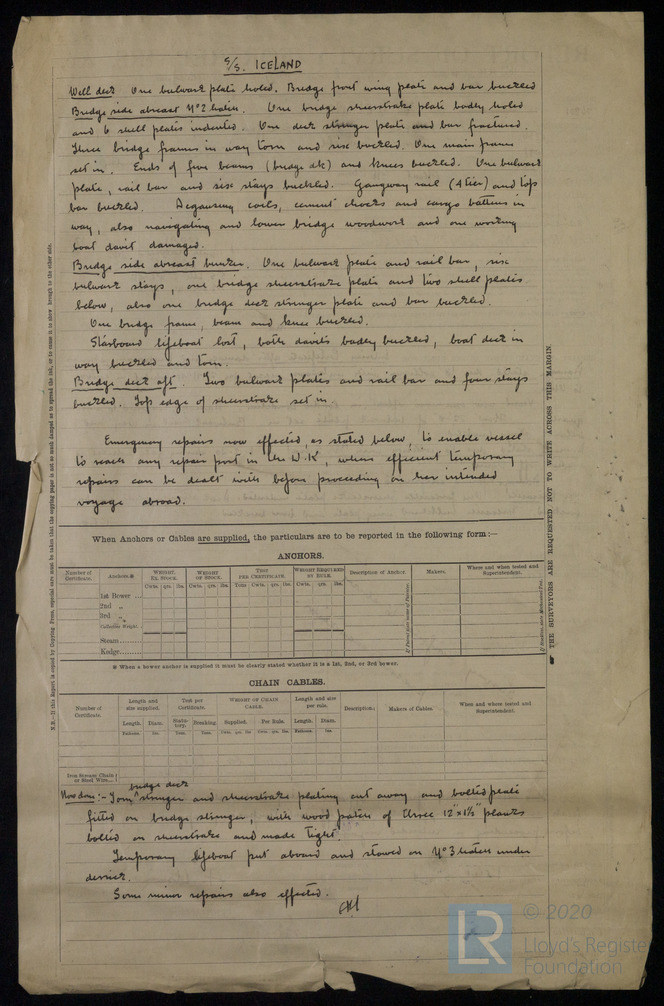 S/S. ICELAND
Well deck One bulwark plate holed. Bridge front wing plate and bar buckled
Bridge side abreast No 2 hatch. One bridge sheerstrake plate badly holed
and 6 shell plates indented. One deck stringer plate and bar fractured.
Three bridge frames in way torn and six buckled. One main frame
set in. Ends of five beams (bridge dk) and knees buckled. One bulwark
plate, rail bar and six stays buckled. Gangway rail (4 tier) and top
bar buckled. Degaussing coils, cement chocks and cargo battens in
way, also navigating and lower bridge woodwork and one working
boat davit damaged.
Bridge side abreast bunker. One bulwark plate and rail bar, six
bulwark stays, one bridge sheerstrake plate and two shell plates
below, also one bridge deck stringer plate and bar buckled.
One bridge frame, beam and knee buckled.
Starboard lifeboat lost, both davits badly buckled, boat deck in
way buckled and torn.
Bridge deck aft. Two bulwark plates and rail bar and four stays
buckled. Top edge of sheerstrake set in.
Emergency repairs now effected, as stated below, to enable vessel
to reach any repair port in the U.K, where efficient temporary
repairs can be dealt with before proceeding on her intended
voyage abroad.
When Anchors or Cables are supplied, the particulars are to be reported in the following form:—
ANCHORS.
Number of Certificate. Anchors.* WEIGHT, EX. STOCK. WEIGHT OF STOCK. TEST PER CERTIFICATE. WEIGHT REQUIRED BY RULE. Description of Anchor. Makers. Where and when tested and Superintendent.
Cwts. qrs. lbs. Cwts. qrs. lbs. Tons. Cwts. qrs. lbs. Cwts. qrs. lbs.
1st Bower ...
2nd „
3rd „
Collective Weight.
Stream........
Kedge........
* When a bower anchor is supplied it must be clearly stated whether it is a 1st, 2nd, or 3rd bower.
CHAIN CABLES.
Number of Certificate. Length and size supplied. Test per Certificate. WEIGHT OF CHAIN CABLE. Length and size per rule. Description. Makers of Cables. Where and when tested and Superintendent.
Length. Diam. Statutory. Breaking. Supplied. Per Rule. Length. Diam.
Fathoms. Ins. Tons. Tons. Cwts. qrs. lbs. Cwts. qrs. lbs. Fathoms. Ins.
Iron Stream Chain or Steel Wire...
bridge deck
Now done:- Torn stringer and sheerstrake plating cut away and bolted plate
fitted on bridge stringer, with wood patch of three 12"x1½" planks
bolted on sheerstrake and made tight.
Temporary lifeboat put aboard and stowed on No 3 hatch under
derrick.
Some minor repairs also effected.
N.B.—If this Report is copied by Copying Press, especial care must be taken that the copying paper is not so much damped as to spread the ink, or to cause it to show through to the other side.
THE SURVEYORS ARE REQUESTED NOT TO WRITE ACROSS THIS MARGIN.
LR
© 2020
Lloyd's Register
Foundation